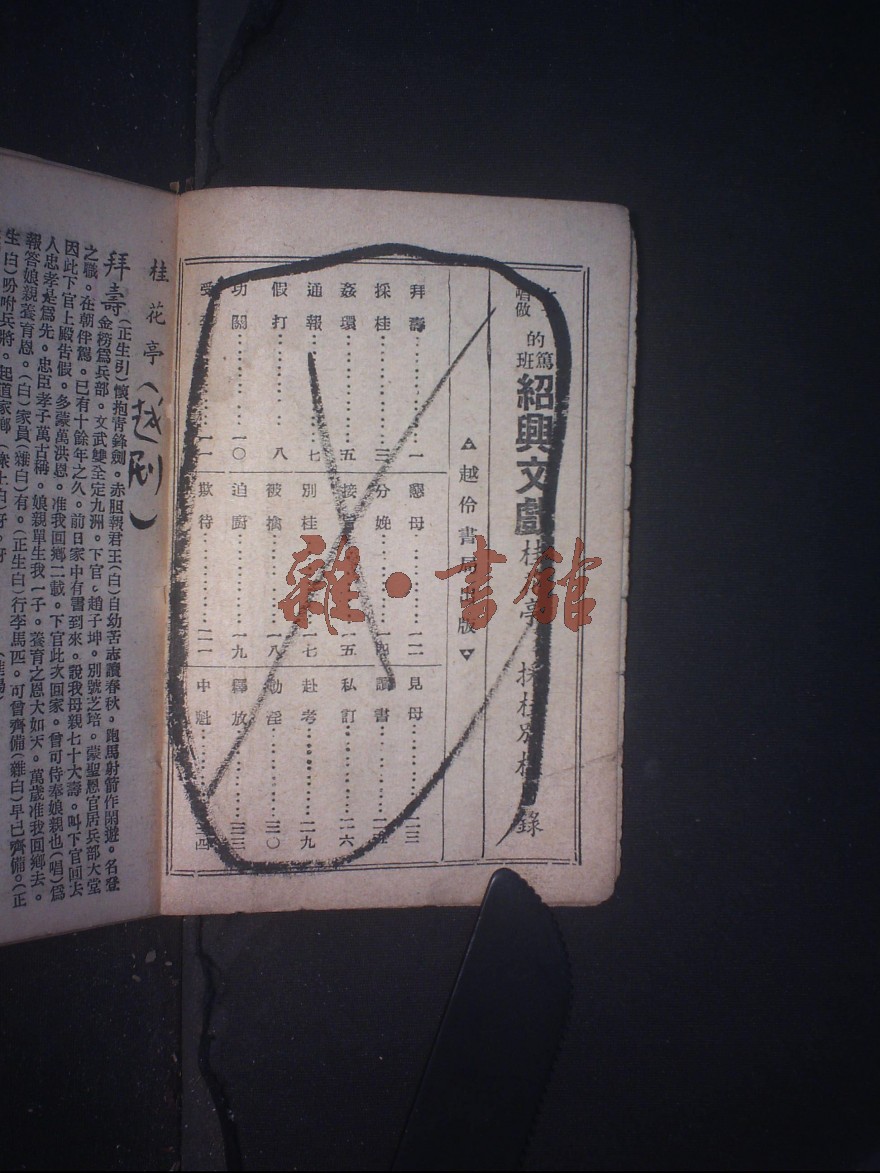 唱做
的篤班
紹興文戲
錄
▲越伶書局出版▼
拜壽…………一
採桂…………三
姦環…………五
通報…………七
假打…………八
功關…………一〇
一一
懇母…………一二
分娩…………一四
一五
別桂…………一七
被擒…………一八
迫厨…………一九
欺待…………二一
見母…………二三
讀書
私訂…………二六
赴考…………二九
勸淫…………三〇
釋放…………三三
中魁
雜·書館
桂花亭(越剧)
拜壽(正生引)懷抱青鋒劍。赤胆報君王(白)自幼苦志讀春秋。跑馬射箭作閒遊。名登
金榜爲兵部。文武雙全定九洲。下官。趙子坤。別號芝培。蒙聖恩官居兵部大堂
之職。在朝伴駕。已有十餘年之久。前日家中有書到來。說我母親七十大壽。叫下官回去
因此下官上殿告假。多蒙萬洪恩。准我回鄉二載。下官此次回家。曾可侍奉娘親也(唱)爲
人忠孝是爲先。忠臣孝子萬古稱。娘親單生我一子。養育之恩大如天。萬歲准我回鄉去。
報答娘親養育恩。(白)家員(雜白)有。(正生白)行李馬匹。可曾齊備(雜白)早已齊備。(正
生白)吩咐兵將。起道家鄉